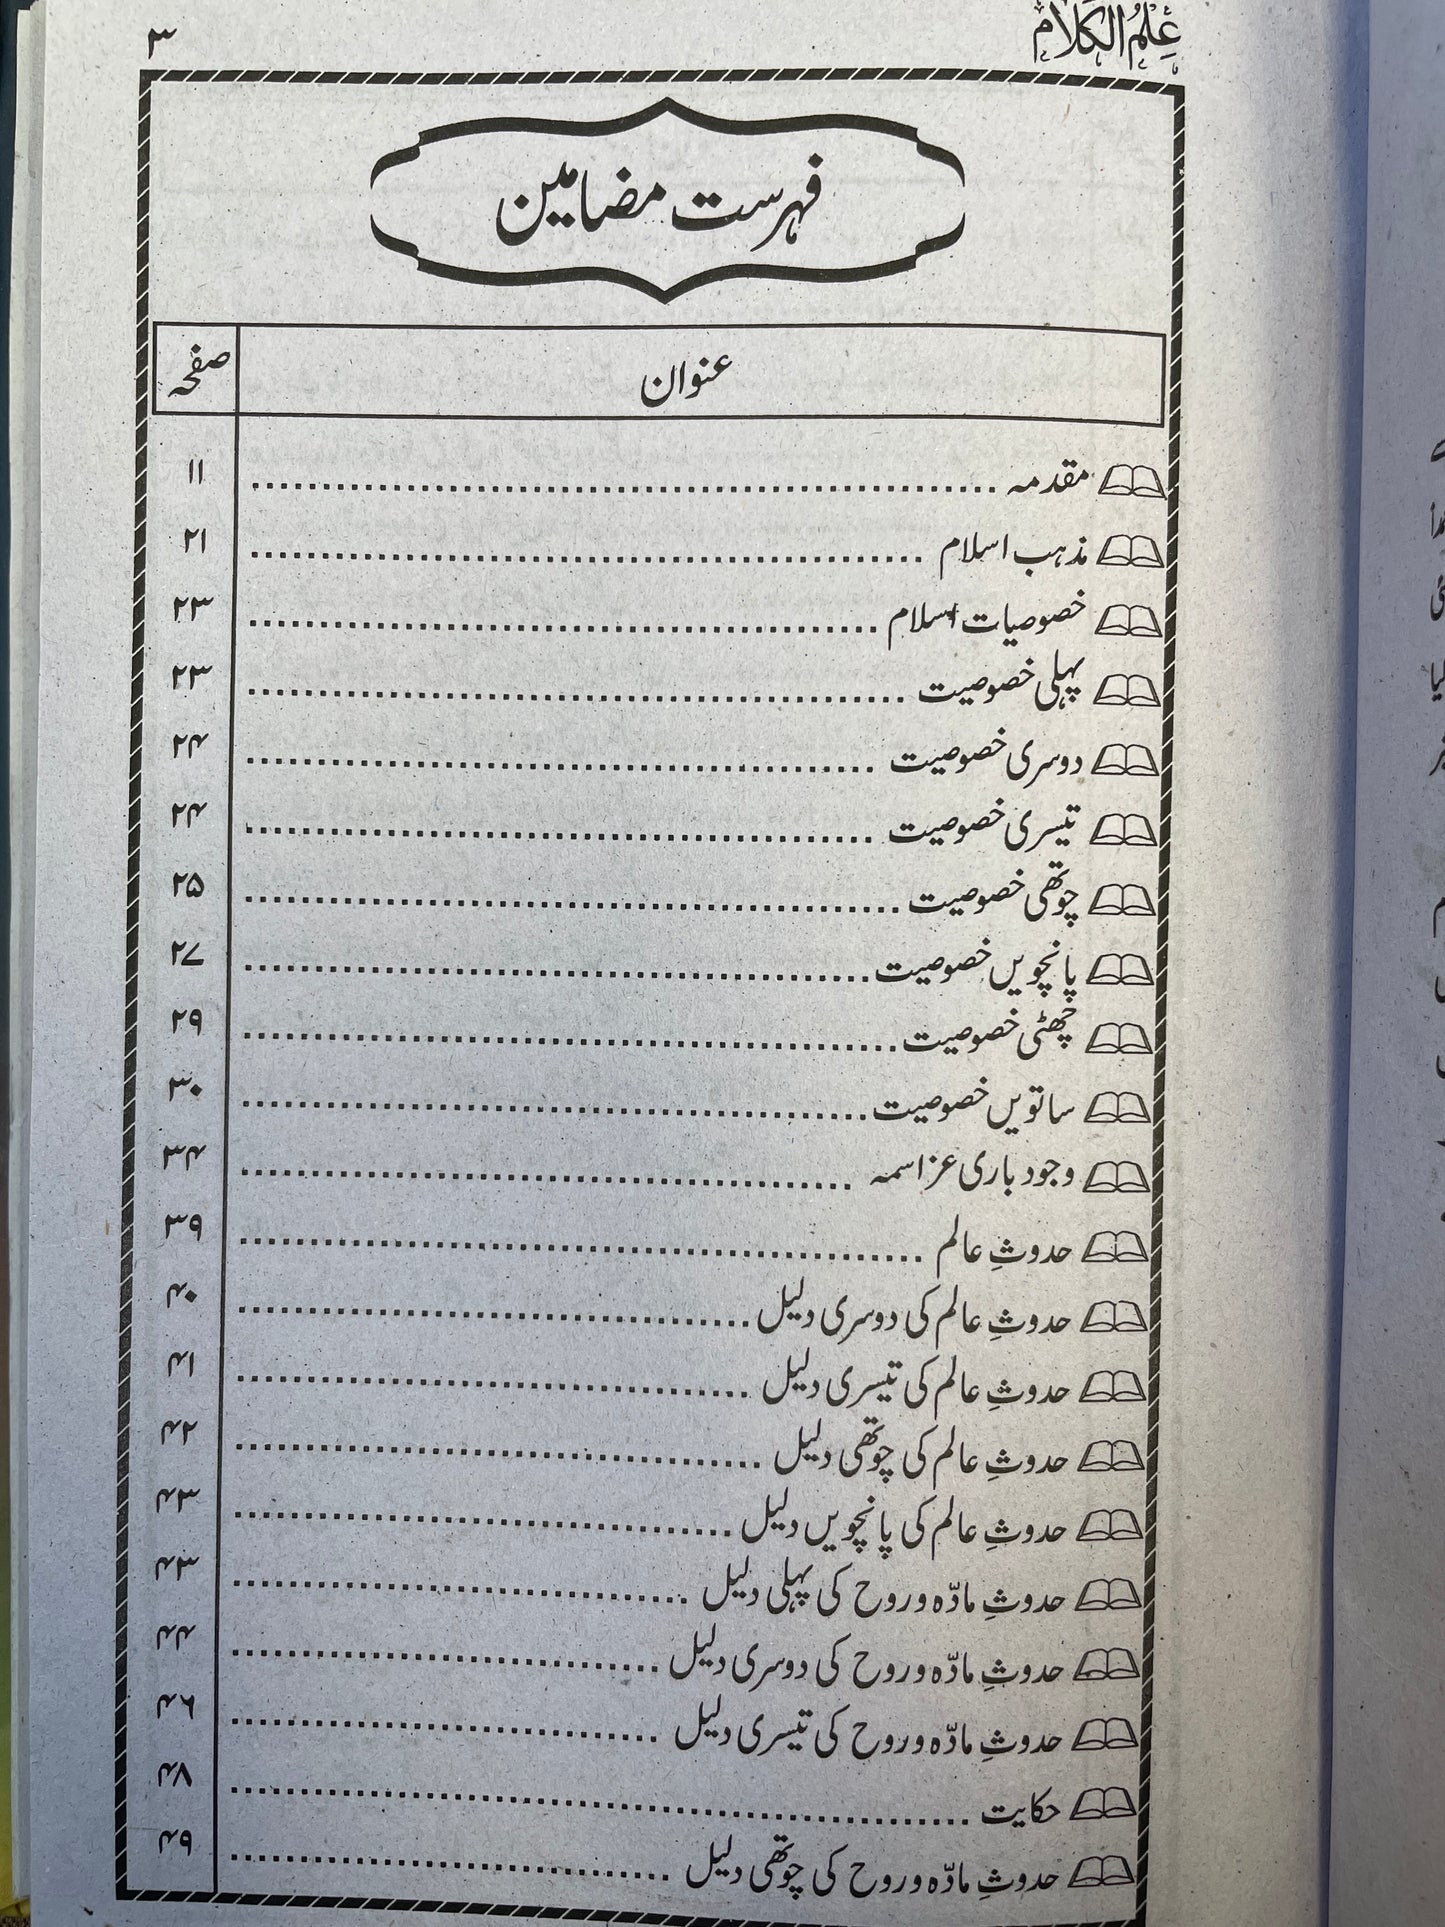 علم الکلام ۳
فہرست مضامین
عنوان صفحہ
مقدمہ ۱۱
مذہب اسلام ۲۱
خصوصیات اسلام ۲۳
پہلی خصوصیت ۲۳
دوسری خصوصیت ۲۴
تیسری خصوصیت ۲۴
چوتھی خصوصیت ۲۵
پانچویں خصوصیت ۲۷
چھٹی خصوصیت ۲۹
ساتویں خصوصیت ۳۰
وجود باری عز اسمہ ۳۴
حدوثِ عالم ۳۹
حدوثِ عالم کی دوسری دلیل ۴۰
حدوثِ عالم کی تیسری دلیل ۴۱
حدوثِ عالم کی چوتھی دلیل ۴۲
حدوثِ عالم کی پانچویں دلیل ۴۳
حدوثِ مادّہ وروح کی پہلی دلیل ۴۳
حدوثِ مادّہ وروح کی دوسری دلیل ۴۴
حدوثِ مادّہ وروح کی تیسری دلیل ۴۶
حکایت ۴۸
حدوثِ مادّہ وروح کی چوتھی دلیل ۴۹